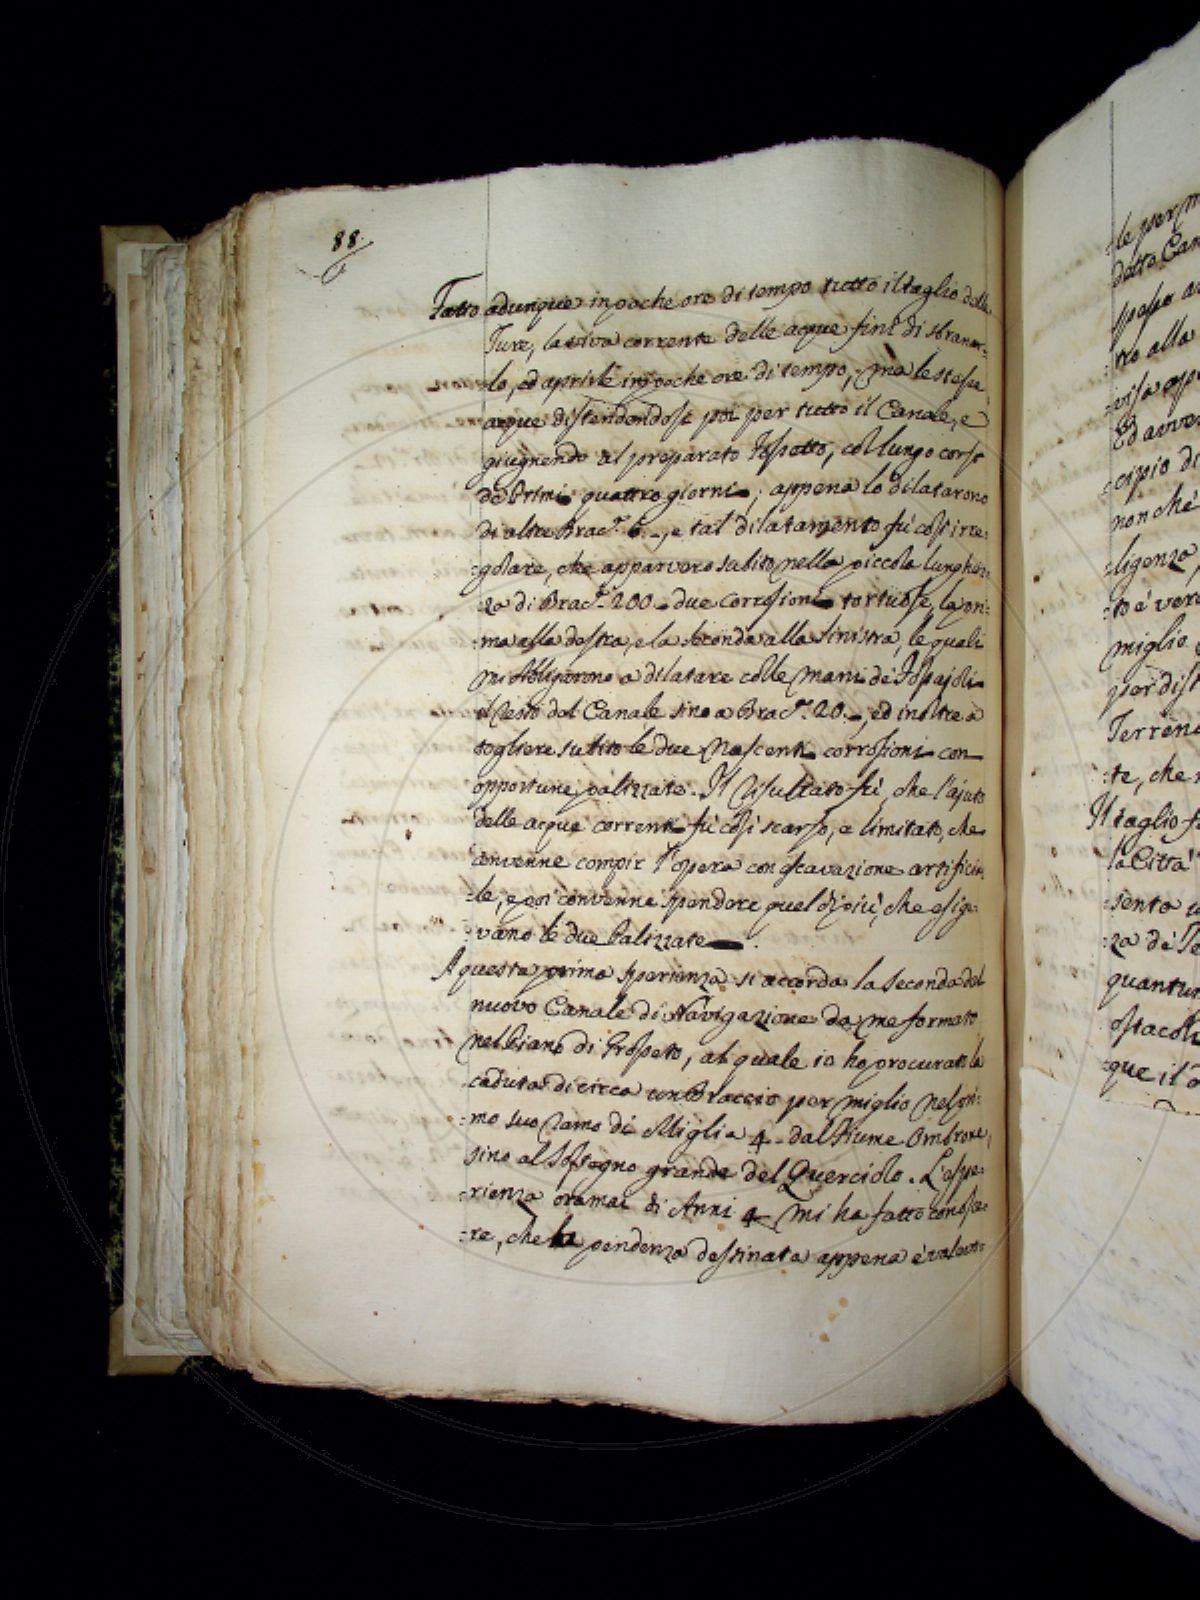 88.
Fatto adunque in poche ore di tempo tutto il taglio delle
Ture, la viva corrente delle acque finì di sbranar=
=lo, ed aprirlo in poche ore di tempo, ma le stesse
acque distendendosi poi per tutto il Canale, e
giugnendo al preparato Fossetto, col lungo corso
de Primi quattro giorni, appena lo dilatarono
di altre Braccᵃ 6., e tal dilatamento fù così irre=
=golare, che apparvero subito nella piccola lunghez=
=za di Braccᵃ 200. due corrosioni tortuose, la pri=
=ma alla destra, e la seconda alla sinistra, le quali
mi obbligarono a dilatare colle mani de' Fossajoli
il resto del Canale sino a Braccᵃ 20., ed inoltre a
togliere subito le due nascenti corrosioni con
opportune palizzate. Il risultato fù, che l'ajuto
delle acque correnti fù così scarso, e limitato, che
convenne compir l'opera con escavazione artificia=
=le, e poi convenne spendere quel di più, che esige=
=vano le due Palizzate.
A questa prima sperienza si accorda la seconda del
nuovo Canale di Navigazione da me formato
nel Piano di Grosseto, al quale io ho procurato la
caduta di circa un Braccio per miglio nel pri=
=mo suo ramo di Miglia 4. dal Fiume Ombrone,
sino al Sostegno grande del Querciolo. L'espe=
=rienza oramai di Anni 4 mi ha fatto conosce=
=re, che la pendenza destinata appena è valevo=
=le per m
detto Can
spesse
tro alla
=visa
Ed avve
=cipio di
non ché
=ligenza,
=to è vero
miglio
per dist
Terreno
=te, che
Il taglio f
la Città
=sento
=za de' Te
quantun
ostacoli
=que il